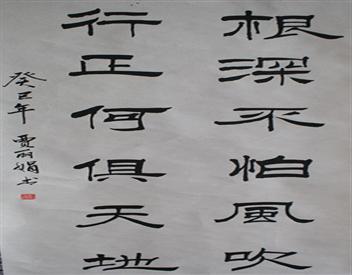 根深不怕風吹
行正何俱天地
癸巳年 賈丽娟书